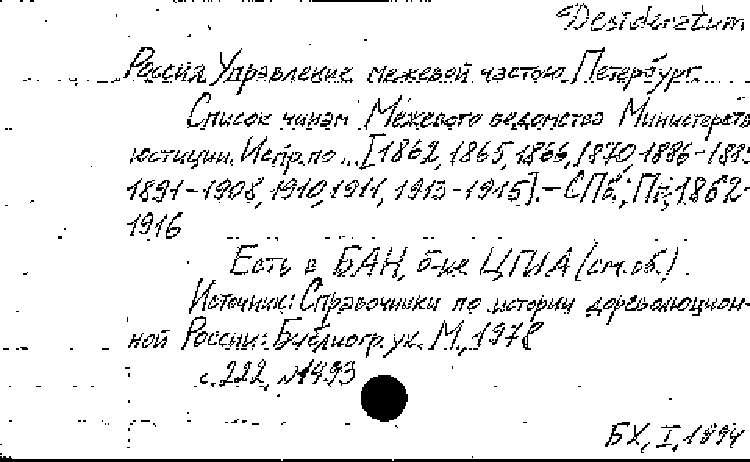 Desideratum
Россия Управление межевой частью. Петербург.
Список чинам Межевого ведомства Министерств
юстиции. Испр. по ... [1862, 1865, 1866, 1870, 1886-188
1891-1908, 1910, 1911, 1913-1915]. - СПб.; Пг; 1862-
1916
Есть в БАН, б-ке ЦГИА (см. об.).
Источник: Справочники по истории дореволюцион-
ной России: Библиогр. ук. М., 1978
с. 222, №1493
БХ, I, 1994